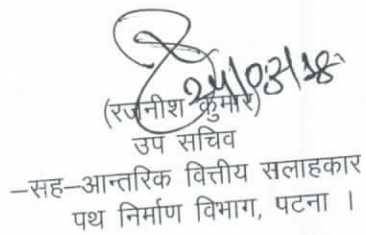 24/03/18
(रजनीश कुमार)
उप सचिव
–सह–आन्तरिक वित्तीय सलाहकार
पथ निर्माण विभाग, पटना ।